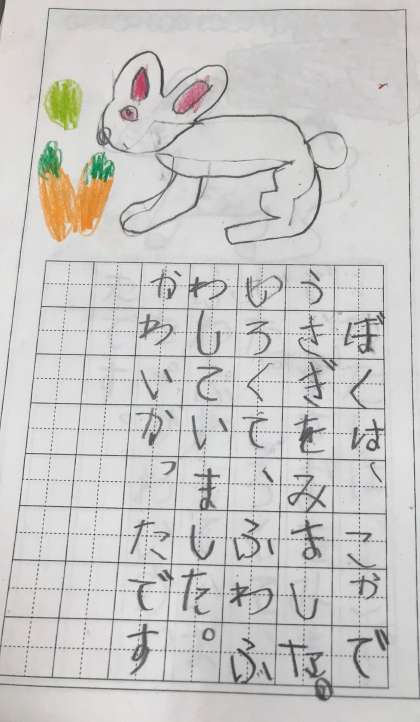 ぼくは、こかで
うさぎをみました。
しろくて、ふわふ
わしていました。
かわいかったです